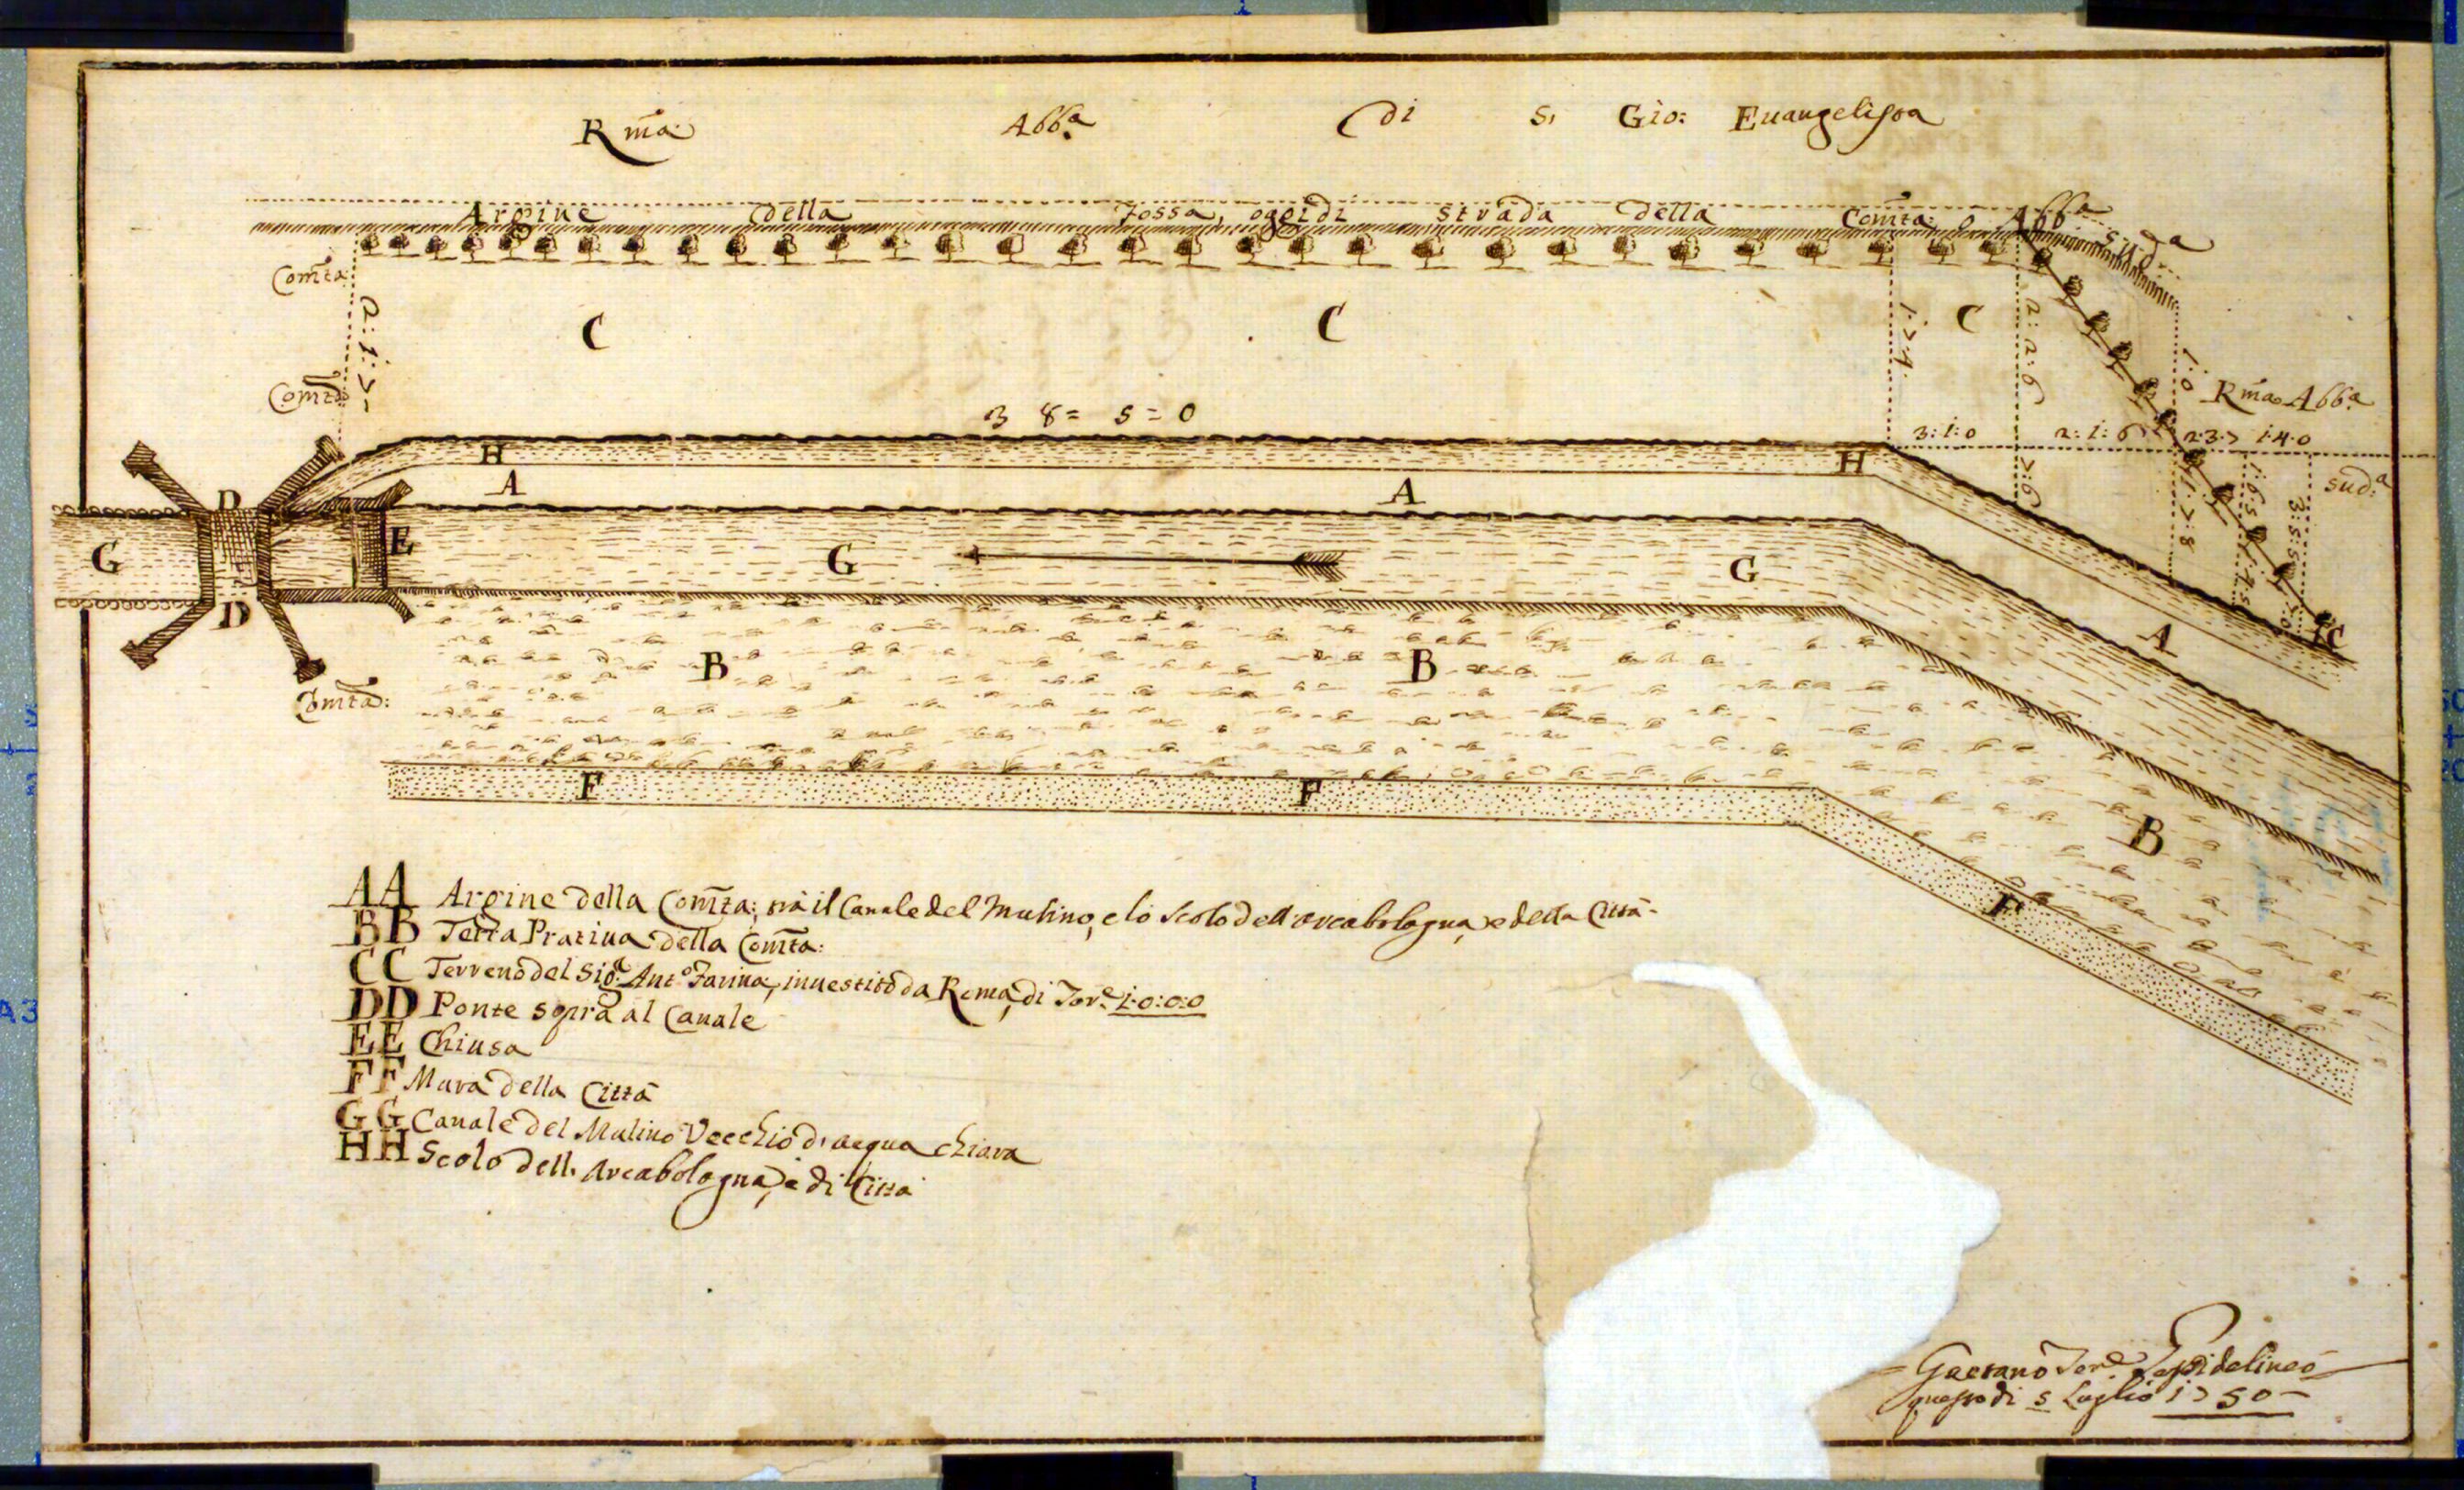 Rma: Abba di S, Gio: Euangelista
Argine della Fossa, oggidi strada della Comta: e Abba sudᵃ
Comta:
2:1:7
C
C
1:7:4
C
2:2:6
1:0
Comta:
Rma Abbᵃ
38=5=0
3:1:0
2:1:6
2:3:7
1:4:0
H
H
7:6
sud:ᵃ
A
A
1:7:8
1:6:5
3:5:5
D
E
G
G
G
D
A
B
B
Comta:
F
F
B
F
AA Argine della Comta: frà il Canale del Mulino, e lo Scolo dell'Arcabologna, e della Città
BB Terra Pratiua della Comta:
CC Terreno del Sigʳ Antº Farina, inuestito da Rma, di Torᵉ 1:0:0:0
DD Ponte sopra al Canale
EE Chiusa
FF Mura della Città
GG Canale del Mulino Vecchio d'acqua chiara
HH Scolo dell'Arcabologna, e di Città
Gaetano delineò
questo di 5 Luglio 1750